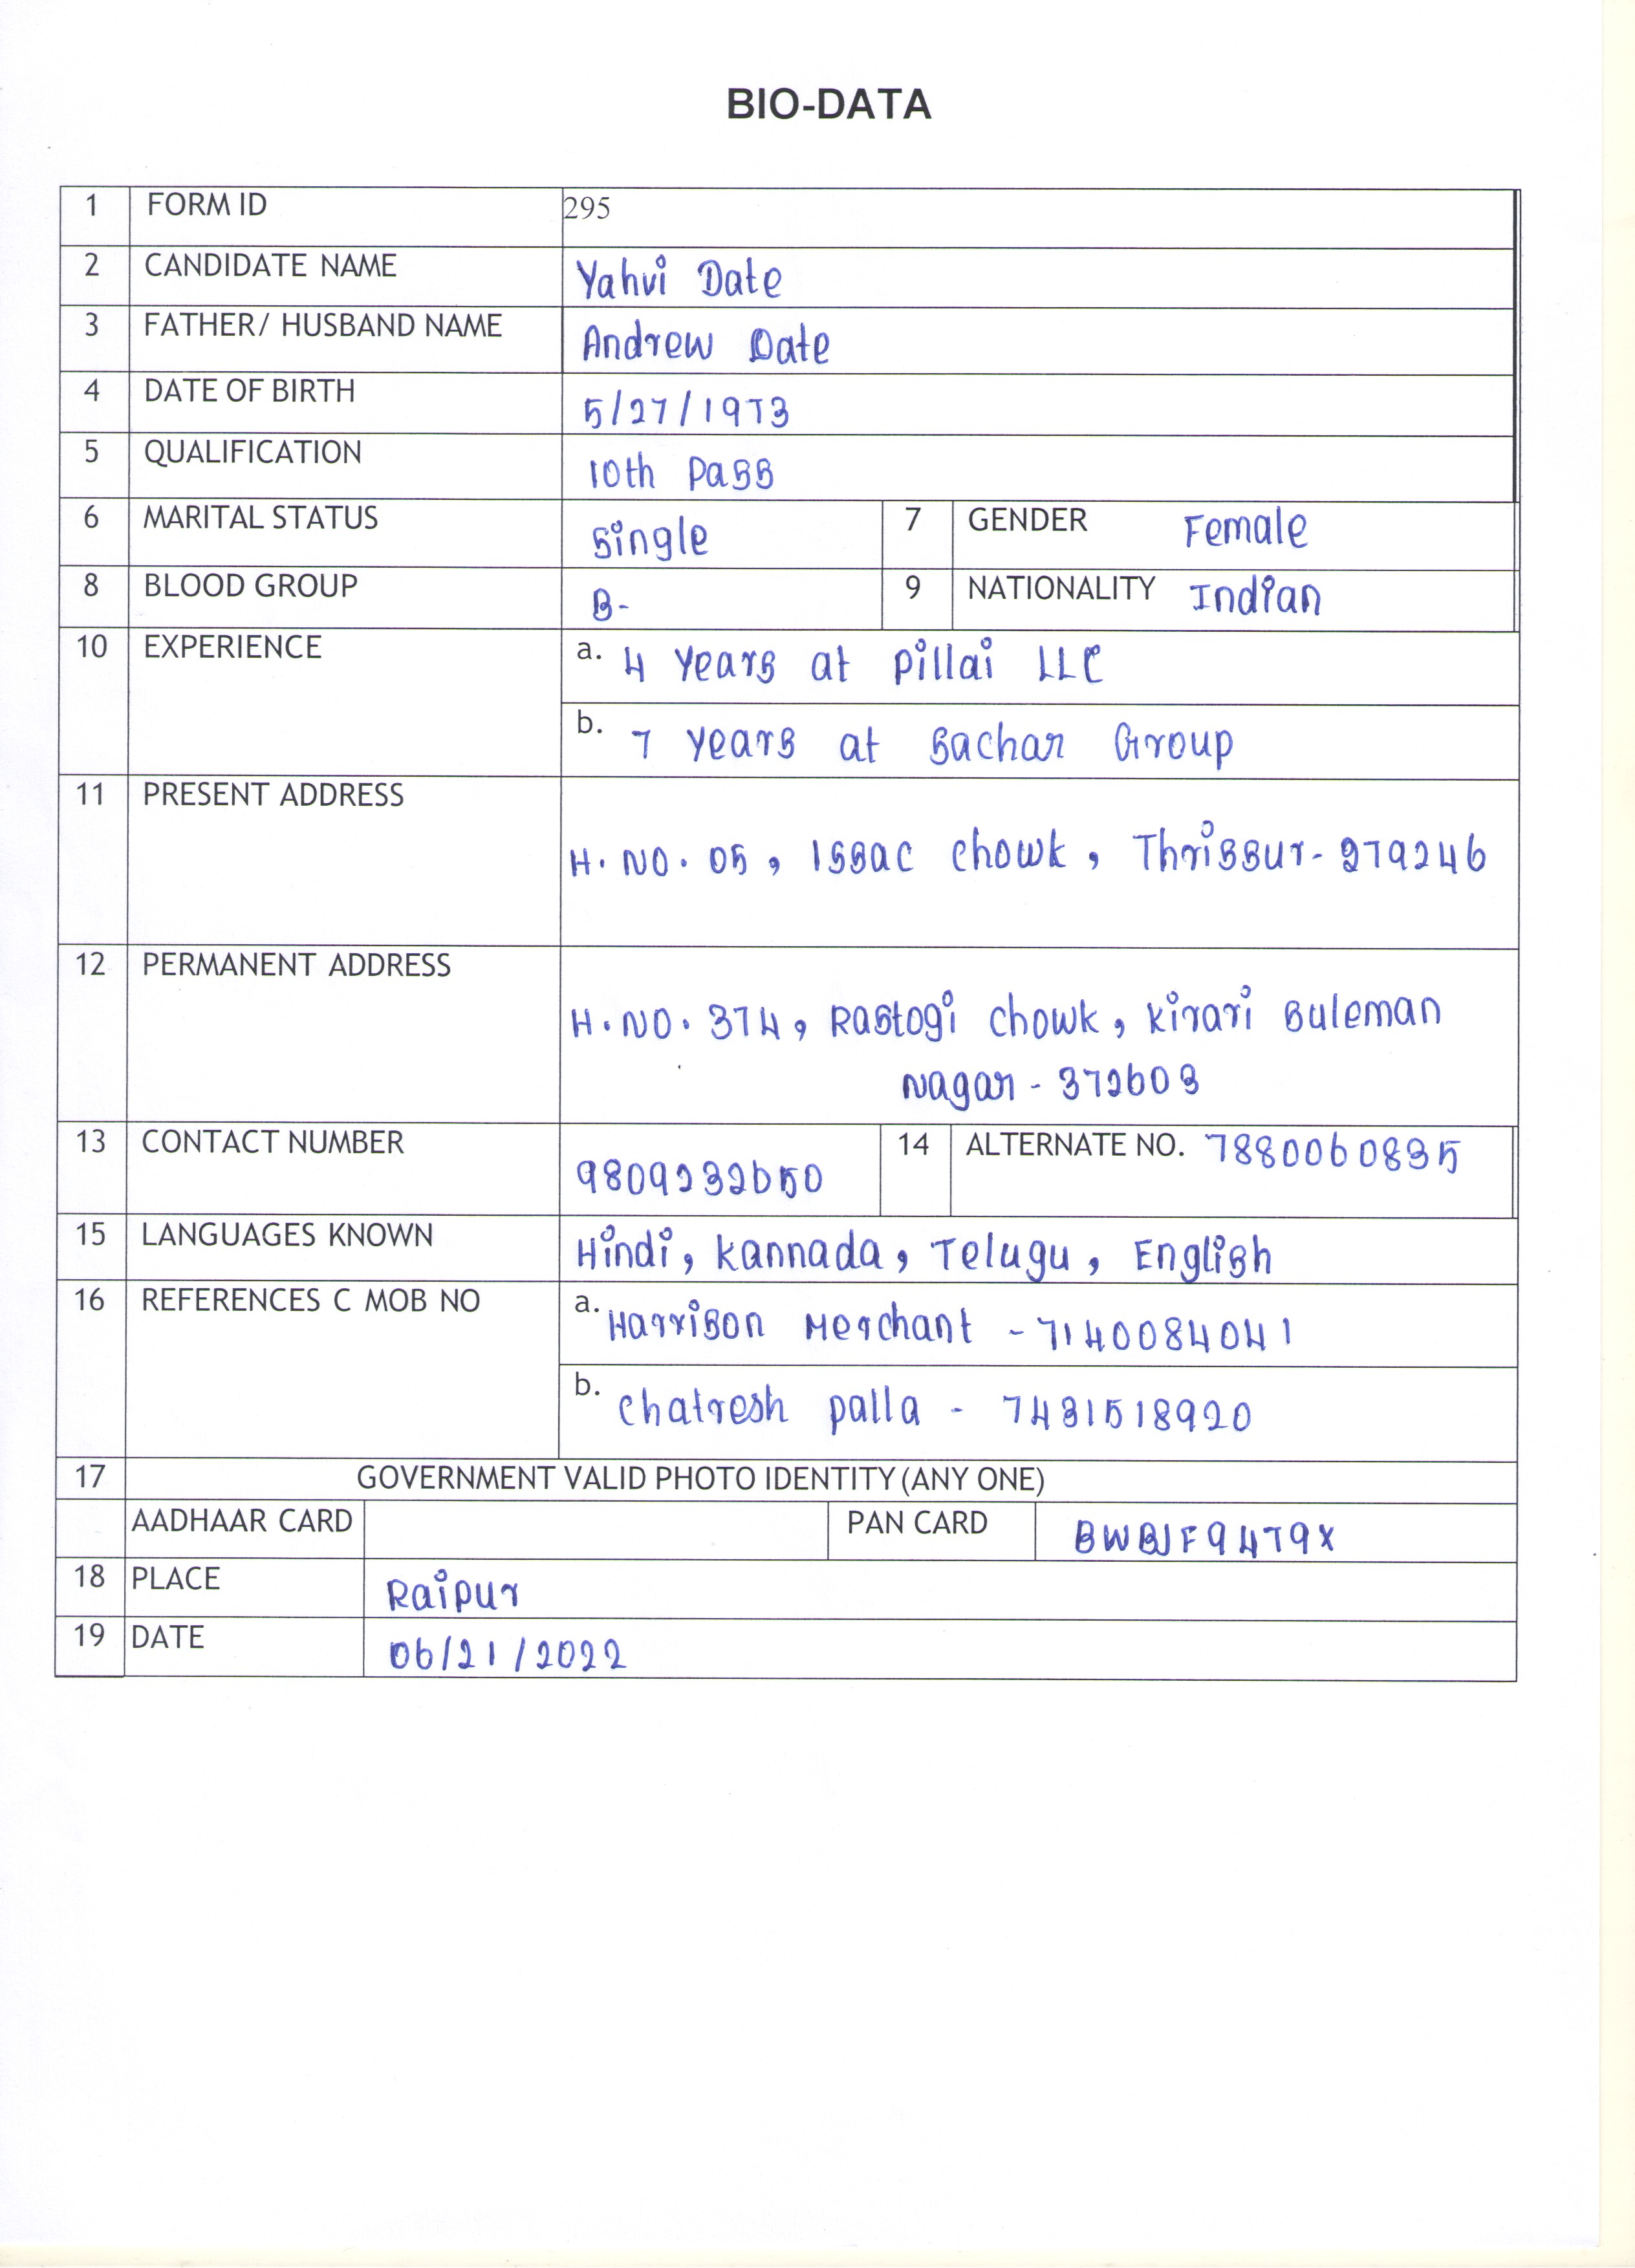 BIO-DATA
1 FORM ID 295
2 CANDIDATE NAME Yahvi Date
3 FATHER/ HUSBAND NAME Andrew Date
4 DATE OF BIRTH 5/27/1973
5 QUALIFICATION 10th Pass
6 MARITAL STATUS Single 7 GENDER Female
8 BLOOD GROUP B- 9 NATIONALITY Indian
10 EXPERIENCE a. 4 Years at Pillai LLC
b. 7 Years at Sachar Group
11 PRESENT ADDRESS
H.NO. 05, Issac Chowk, Thrissur-279246
12 PERMANENT ADDRESS
H.NO. 374, Rastogi Chowk, Kirari Suleman
Nagar - 372603
13 CONTACT NUMBER 9809232650 14 ALTERNATE NO. 7880060835
15 LANGUAGES KNOWN Hindi, Kannada, Telugu, English
16 REFERENCES C MOB NO a. Harrison Merchant - 7140084041
b. Chatresh Palla - 7431518920
17 GOVERNMENT VALID PHOTO IDENTITY (ANY ONE)
AADHAAR CARD PAN CARD BWBJF9479X
18 PLACE Raipur
19 DATE 06/21/2022